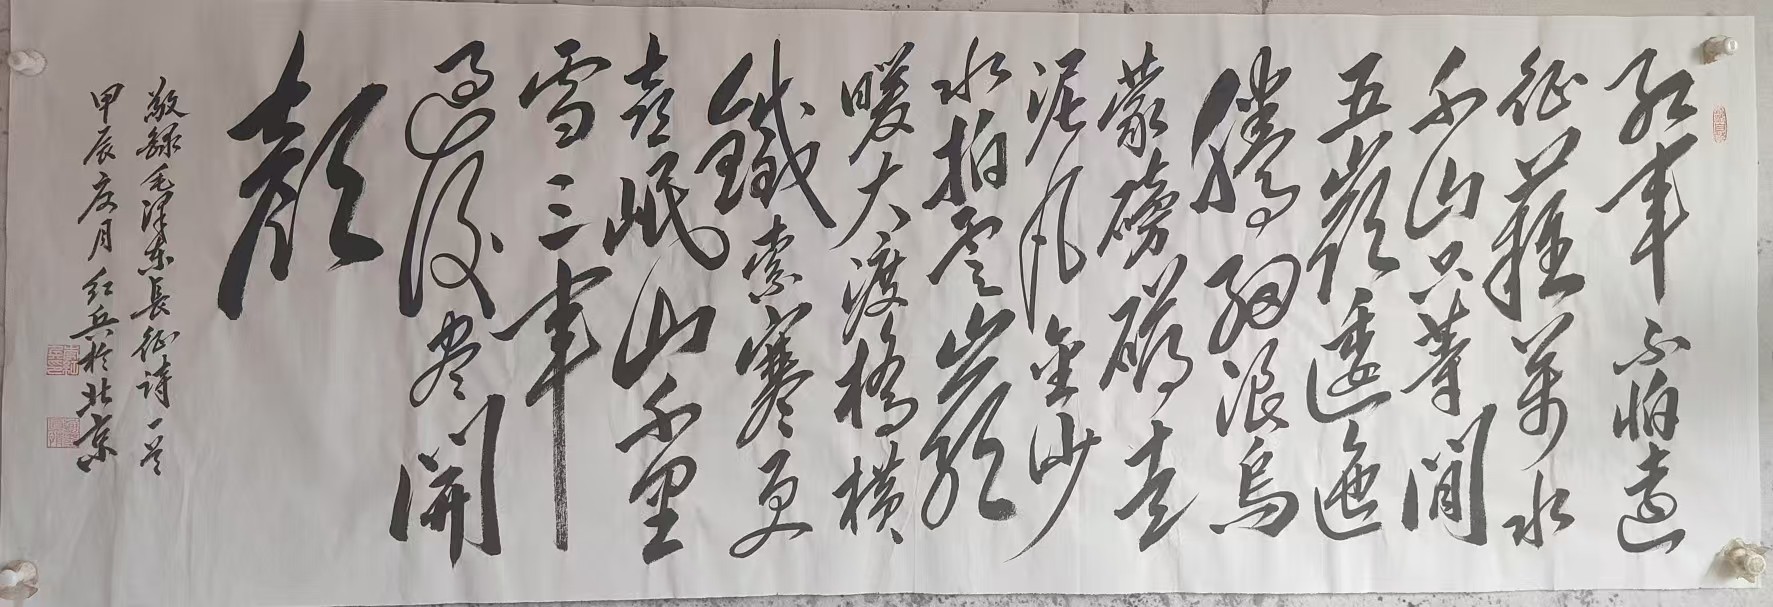 紅軍不怕遠
征難萬水
千山只等閒
五嶺逶迤
騰細浪烏
蒙磅礴走
泥丸金沙
水拍雲崖
暖大渡橋橫
鐵索寒更
喜岷山千里
雪三軍
過後盡開
顏
敬録毛澤東長征詩一首
甲辰 月紅兵於北京